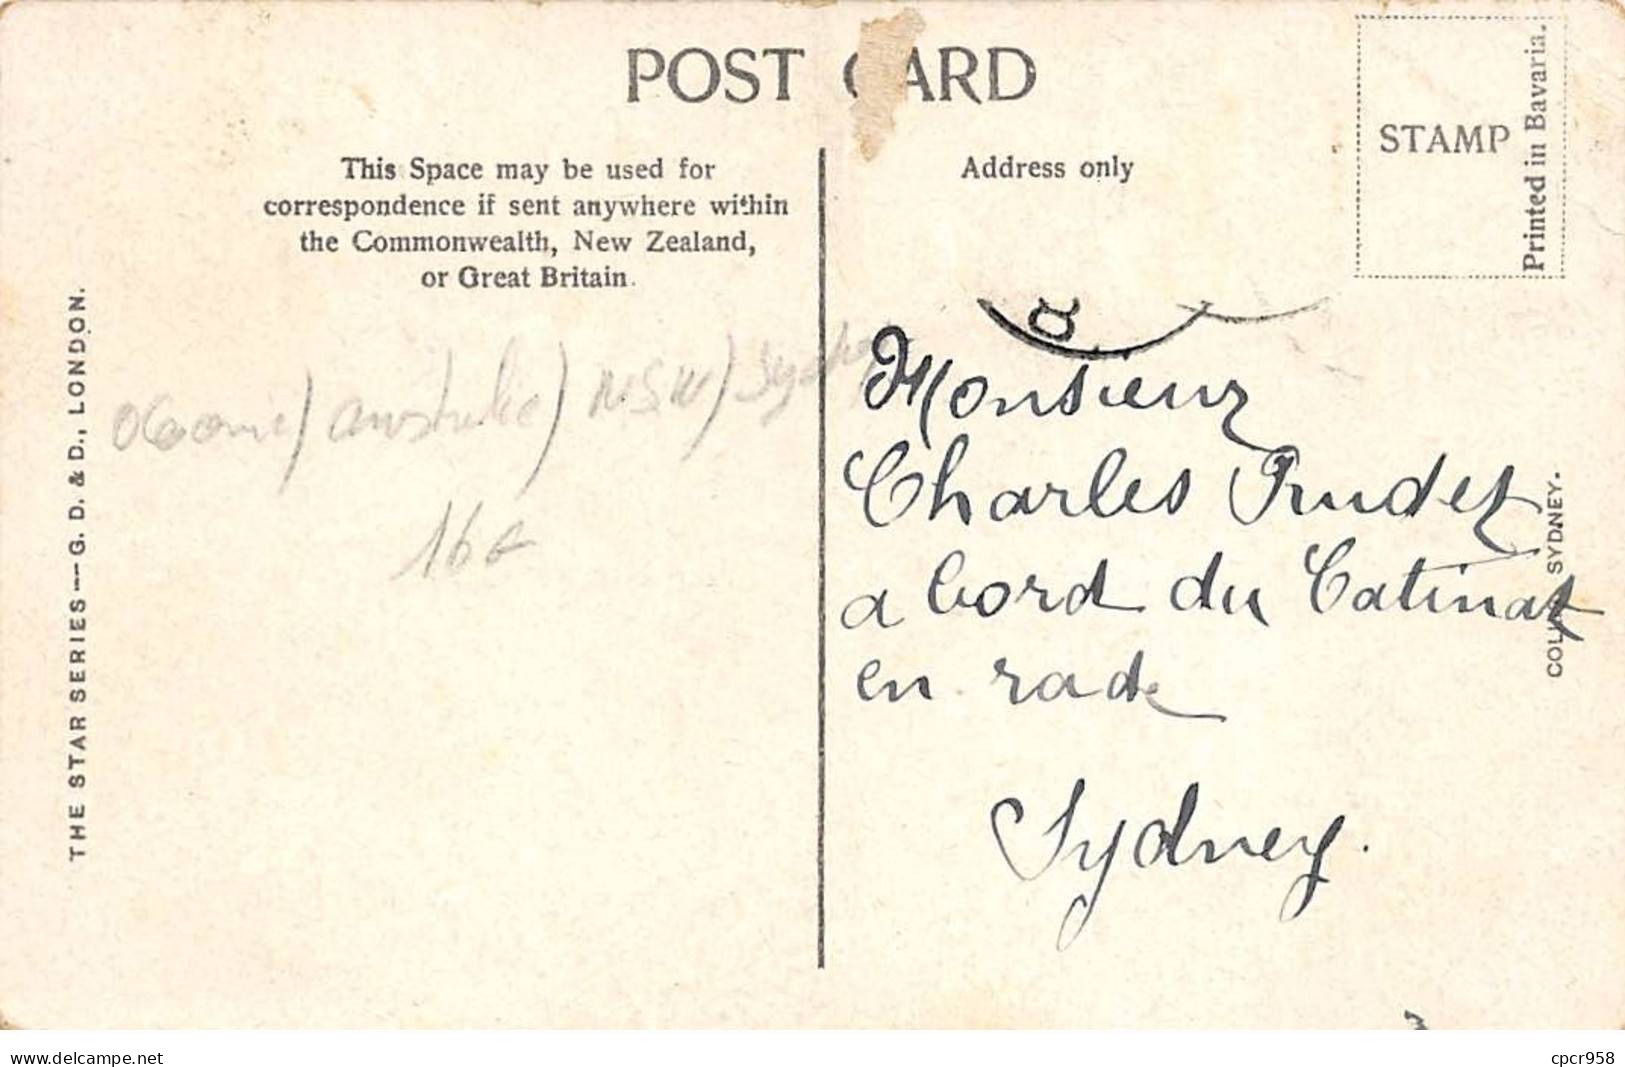 POST CARD
This Space may be used for
correspondence if sent anywhere within
the Commonwealth, New Zealand,
or Great Britain.
Address only
STAMP
Printed in Bavaria.
THE STAR SERIES — G. D. & D., LONDON.
Oceanie / Australie / NSW / Sydney
16
Monsieur
Charles
a bord du Catinat
en rade
Sydney.
SYDNEY.
www.delcampe.net
cpcr958